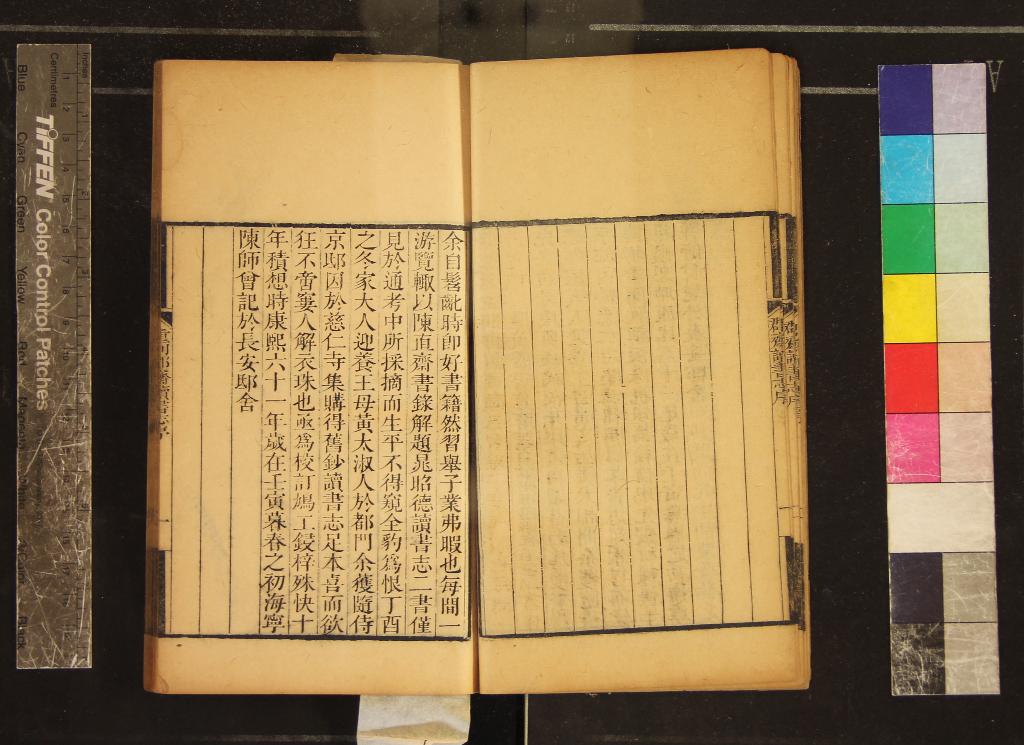 余自髫齔時即好書籍然習舉子業弗暇也每閒一
游覽輒以陳直齋書錄解題晁昭德讀書志二書僅
見於通考中所採摘而生平不得窺全豹為恨丁酉
之冬家大人迎養王母黃太淑人於都門余獲隨侍
京邸因於慈仁寺集購得舊鈔讀書志足本喜而欲
狂不啻窶人解衣珠也亟為校訂鳩工鋟梓殊快十
年積想時康熙六十一年歲在壬寅暮春之初海寧
陳師曾記於長安邸舍
郡齋讀書志序
一
Inches
Centimetres
TIFFEN Color Control Patches
Blue Cyan Green Yellow Red Magenta Black
A